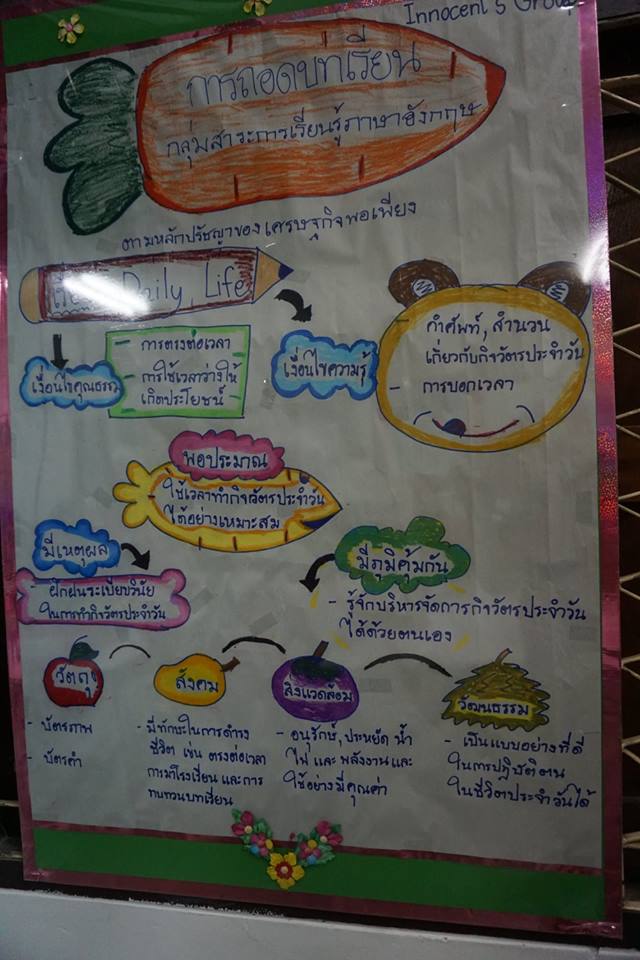 Innocent's Group
การถอดบทเรียน
กลุ่มสาระการเรียนรู้ภาษาอังกฤษ
ตามหลักปรัชญาของเศรษฐกิจพอเพียง
เรื่อง Daily Life
เงื่อนไขคุณธรรม
- การตรงต่อเวลา
- การใช้เวลาว่างให้
เกิดประโยชน์ -
เงื่อนไขความรู้
- คำศัพท์, สำนวน
เกี่ยวกับกิจวัตรประจำวัน
- การบอกเวลา
พอประมาณ
- ใช้เวลาทำกิจวัตรประจำวัน
ได้อย่างเหมาะสม
มีเหตุผล
- ฝึกฝนระเบียบวินัย
ในการทำกิจวัตรประจำวัน
มีภูมิคุ้มกัน
- รู้จักบริหารจัดการกิจวัตรประจำวัน
ได้ด้วยตนเอง
วัตถุ
- บัตรภาพ
- บัตรคำ
สังคม
- มีทักษะในการดำรง
ชีวิต เช่น ตรงต่อเวลา
การมาโรงเรียน และการ
ทบทวนบทเรียน
สิ่งแวดล้อม
- อนุรักษ์, ประหยัด น้ำ
ไฟ และ พลังงาน และ
ใช้อย่างมีคุณค่า
วัฒนธรรม
- เป็นแบบอย่างที่ดี
ในการปฏิบัติตน
ในชีวิตประจำวันได้